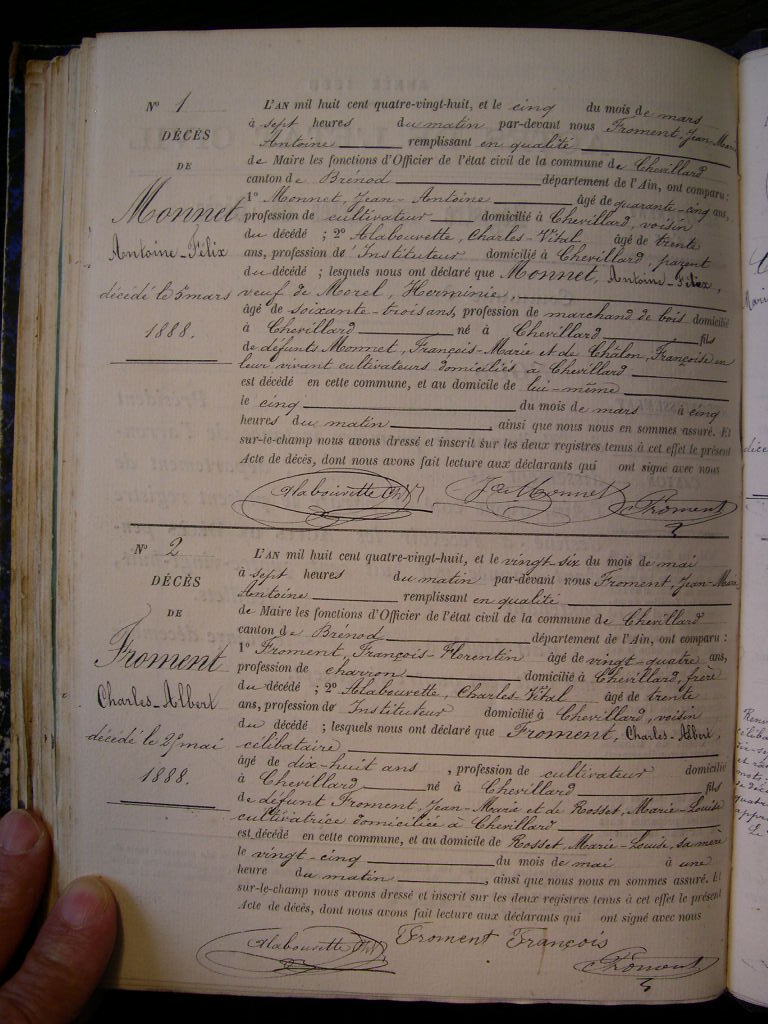 N° 1
DÉCÈS
DE
Monnet
Antoine-Félix
décédé le 5 mars
1888.
L'AN mil huit cent quatre-vingt-huit, et le cinq du mois de mars
à sept heures du matin par-devant nous Froment, Jean-Marie
Antoine remplissant en qualité
de Maire les fonctions d'Officier de l'état civil de la commune de Chevillard
canton de Brénod département de l'Ain, ont comparu :
1° Monnet, Jean-Antoine âgé de quarante-cinq ans,
profession de cultivateur domicilié à Chevillard, voisin
du décédé ; 2° Alabouvette, Charles-Vital, âgé de trente
ans, profession de Instituteur domicilié à Chevillard, parent
du décédé ; lesquels nous ont déclaré que Monnet, Antoine-Félix,
veuf de Morel, Herminie,
âgé de soixante-trois ans, profession de marchand de bois domicilié
à Chevillard né à Chevillard fils
de défunts Monnet, François-Marie et de Châlon, Françoise en
leur vivant cultivateurs domiciliés à Chevillard
est décédé en cette commune, et au domicile de lui-même
le cinq du mois de mars à cinq
heures du matin ainsi que nous nous en sommes assuré. Et
sur-le-champ nous avons dressé et inscrit sur les deux registres tenus à cet effet le présent
Acte de décès, dont nous avons fait lecture aux déclarants qui ont signé avec nous
Alabouvette Ch. V. Monnet Froment
N° 2
DÉCÈS
DE
Froment
Charles-Albert
décédé le 25 mai
1888.
L'AN mil huit cent quatre-vingt-huit, et le vingt-six du mois de mai
à sept heures du matin par-devant nous Froment, Jean-Marie
Antoine remplissant en qualité
de Maire les fonctions d'Officier de l'état civil de la commune de Chevillard
canton de Brénod département de l'Ain, ont comparu :
1° Froment, François-Florentin âgé de vingt-quatre ans,
profession de charron domicilié à Chevillard, frère
du décédé ; 2° Alabouvette, Charles-Vital âgé de trente
ans, profession de Instituteur domicilié à Chevillard, voisin
du décédé ; lesquels nous ont déclaré que Froment, Charles-Albert,
célibataire
âgé de dix-huit ans, profession de cultivateur domicilié
à Chevillard né à Chevillard fils
de défunt Froment, Jean-Marie et de Rosset, Marie-Louise
cultivatrice domiciliée à Chevillard
est décédé en cette commune, et au domicile de Rosset, Marie-Louise, sa mère
le vingt-cinq du mois de mai à une
heure du matin, ainsi que nous nous en sommes assuré. Et
sur-le-champ nous avons dressé et inscrit sur les deux registres tenus à cet effet le présent
Acte de décès, dont nous avons fait lecture aux déclarants qui ont signé avec nous
Alabouvette Ch. V. Froment François Froment